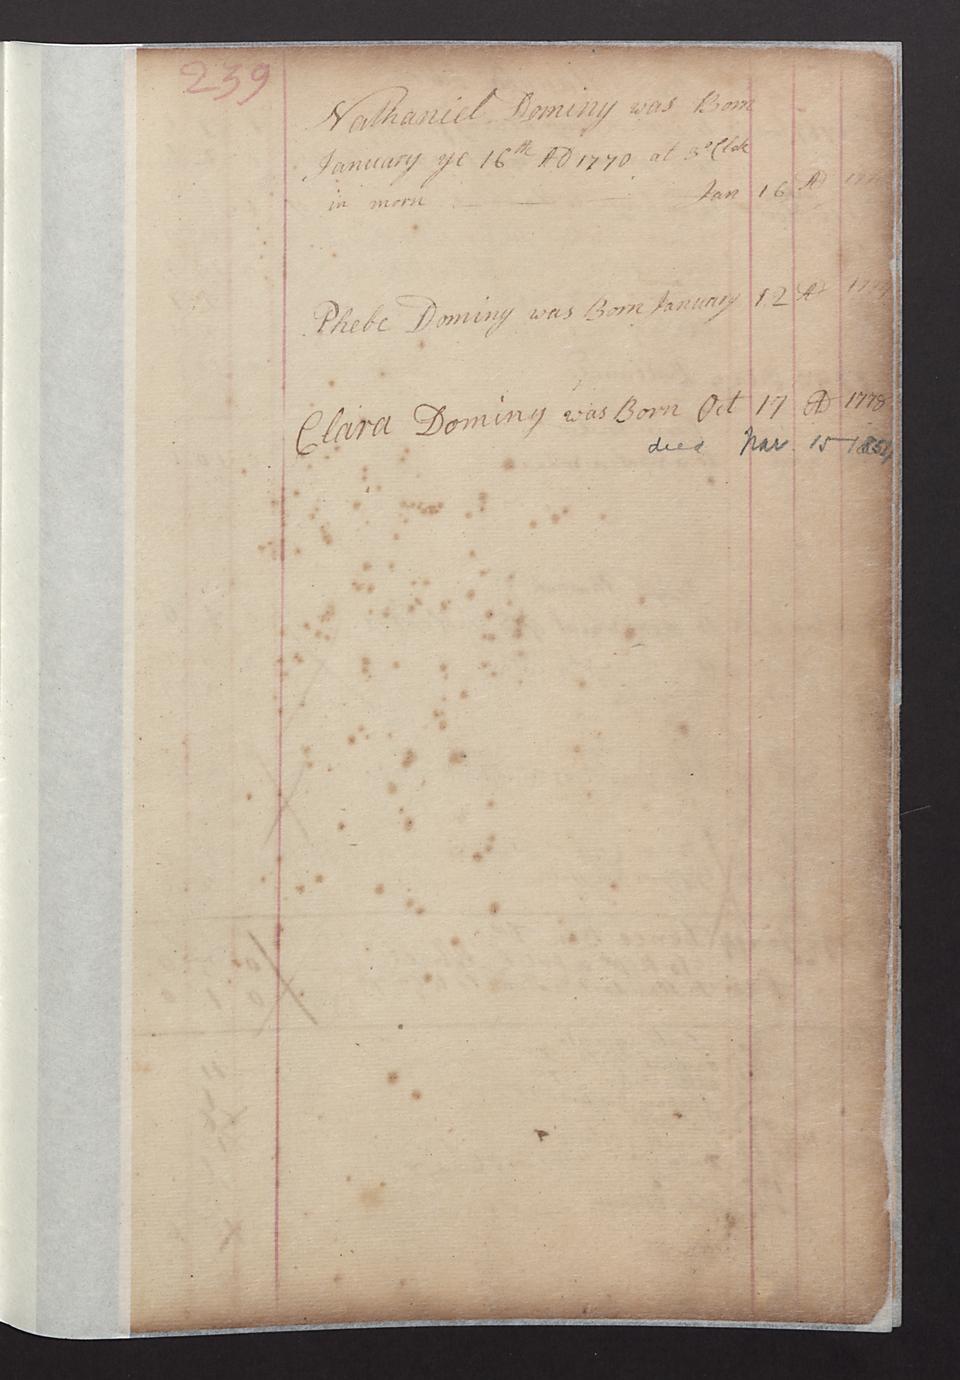 239
Nathaniel Dominy was Born
January ye 16th AD 1770 at 3 oClok
in morn Jan 16 AD
Phebe Dominy was Born January 12 AD
Clara Dominy was Born Oct 17 AD 1778
died Mar. 15 1854